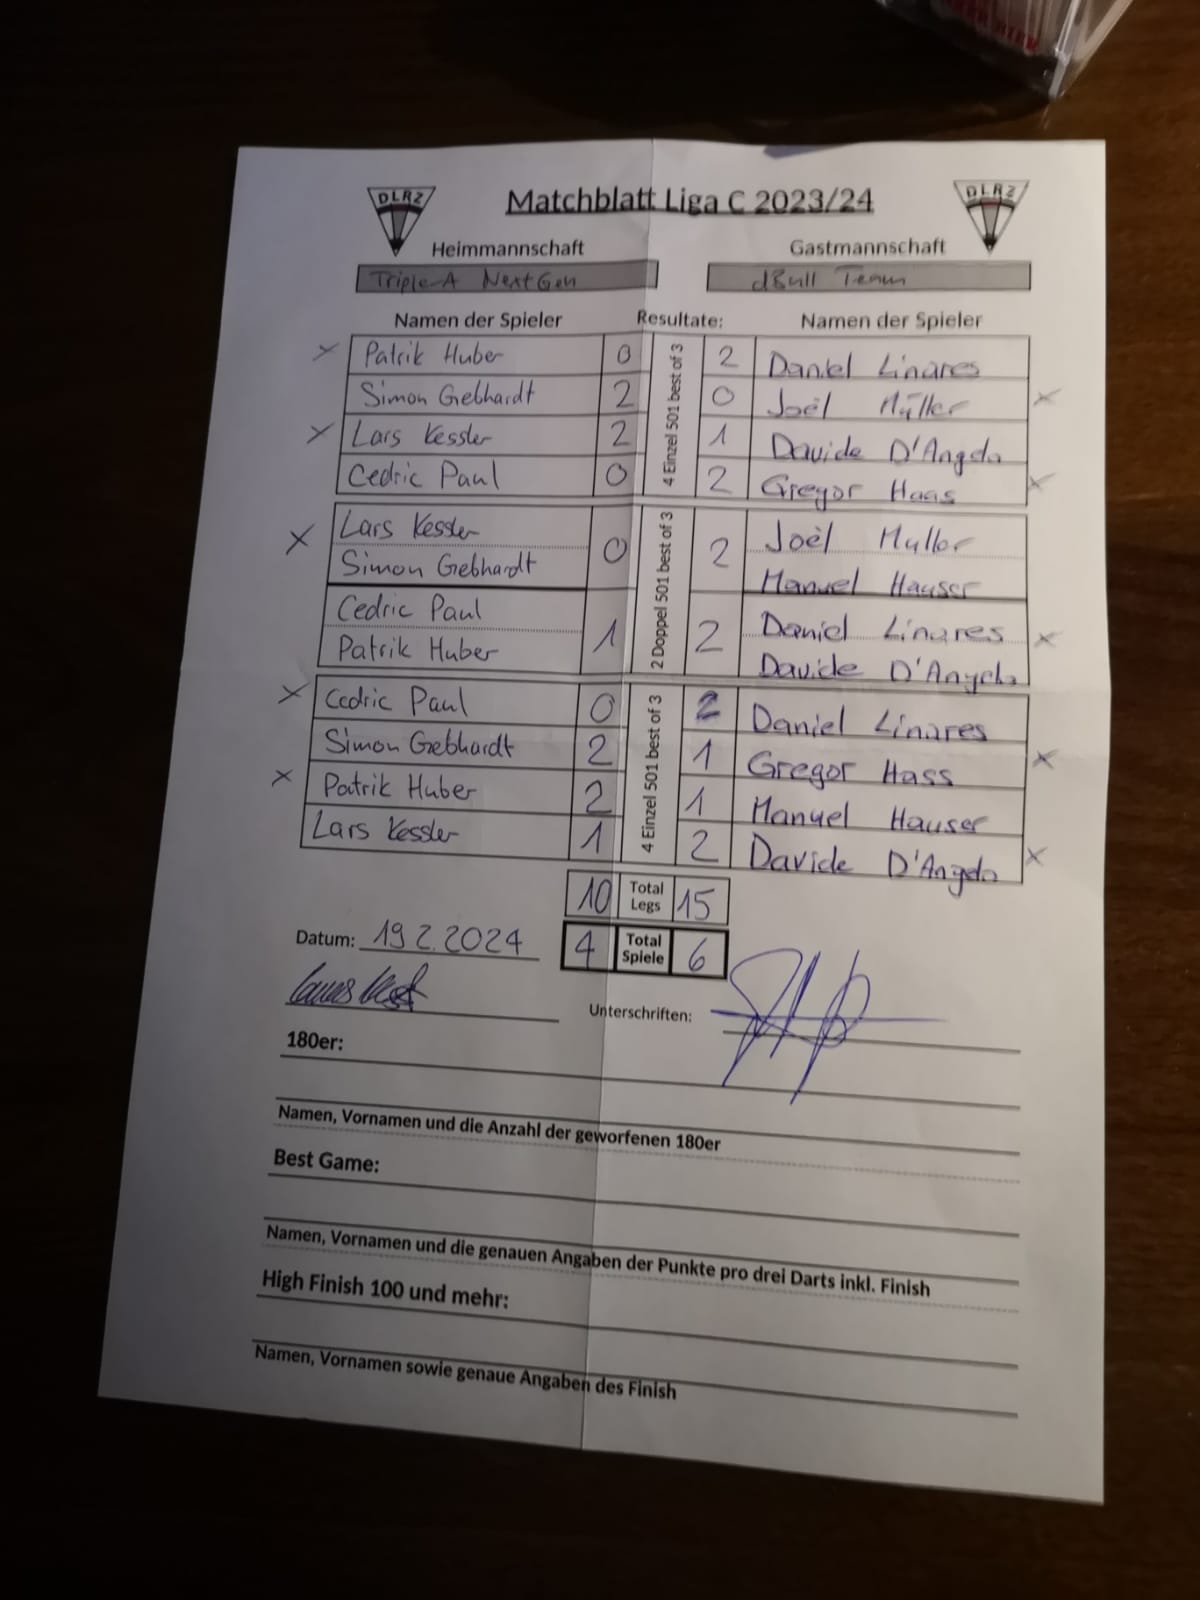 DLRZ Matchblatt Liga C 2023/24 DLRZ
Heimmannschaft Gastmannschaft
Triple-A NextGen dBull Team
Namen der Spieler Resultate: Namen der Spieler
x Patrik Huber 0 2 Daniel Linares
Simon Gebhardt 2 0 Joël Müller x
x Lars Kessler 2 1 Davide D'Angelo
Cedric Paul 0 2 Gregor Haas x
4 Einzel 501 best of 3
x Lars Kessler 0 2 Joël Muller
Simon Gebhardt Manuel Hauser
Cedric Paul 1 2 Daniel Linares x
Patrik Huber Davide D'Angelo
2 Doppel 501 best of 3
x Cedric Paul 0 2 Daniel Linares
Simon Gebhardt 2 1 Gregor Hass x
x Patrik Huber 2 1 Manuel Hauser
Lars Kessler 1 2 Davide D'Angelo x
4 Einzel 501 best of 3
10 Total Legs 15
Datum: 19.2.2024 4 Total Spiele 6
Unterschriften:
180er:
Namen, Vornamen und die Anzahl der geworfenen 180er
Best Game:
Namen, Vornamen und die genauen Angaben der Punkte pro drei Darts inkl. Finish
High Finish 100 und mehr:
Namen, Vornamen sowie genaue Angaben des Finish